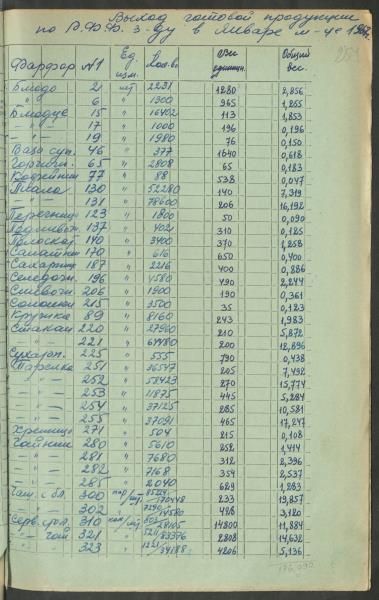 Выход готовой продукции
по Р.Ф.Ф. з-ду в Январе м-це
254
Фарфор №1 Ед. изм. Кол-во Вес единиц. Общий вес.
Блюдо 21 шт 2231 1280 2,856
" 6 " 1300 965 1,255
Блюдце 15 " 16402 113 1,853
— " — 17 " 1000 196 0,196
— " — 19 " 1980 76 0,150
Ваза суп. 46 " 377 1640 0,618
Горчичн. 65 " 2808 65 0,183
Кофейник 77 " 88 538 0,047
Пиала 130 " 52280 140 7,319
— " — 131 " 78600 206 16,192
Перечница 123 " 1800 50 0,090
137 " 402 310 0,125
Полоскат 140 " 3400 370 1,258
Салатник 170 " 616 650 0,400
Сахарниц 187 " 2216 400 0,886
Селедочн. 196 " 4580 490 2,244
Сливочн. 206 " 1900 190 0,361
Солонки 215 " 3500 35 0,123
Кружка 89 " 8160 243 1,983
Стакан 220 " 27960 210 5,872
— " — 221 " 64480 200 12,896
Сухарн. 225 " 555 790 0,438
Тарелка 251 " 36547 205 7,492
— " — 252 " 58423 270 15,774
— " — 253 " 11875 445 5,284
— " — 254 " 37125 285 10,581
— " — 255 " 37091 465 17,247
Хренница 271 " 504 215 0,108
Чайник 280 " 5610 252 1,414
— " — 281 " 7680 312 2,396
— " — 282 " 7168 354 2,537
— " — 285 " 2040 629 1,283
Чаш. с бл. 300 пар/шт 85224/170448 233 19,857
— " — 302 " 7290/14580 428 3,120
Серв. стол. 310 ком/шт 14800 11,884
— " — чай 321 " 2808 14,632
— " — 323 " 1221/34188 4206 5,136
176,090